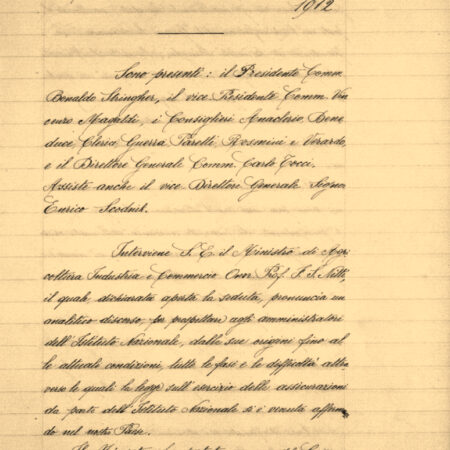 1912
Sono presenti: il Presidente Comm.
Bonaldo Stringher, il vice Presidente Comm. Vin
cenzo Magaldi, i Consiglieri Anaclerio, Bene
duce, Cleria, Guerra, Paretti, Rosmini e Verardo,
e il Direttore Generale Comm. Carlo Tocci.
Assiste anche il vice Direttore Generale Signor
Enrico Scodnik.
Interviene S. E. il Ministro di Agri
coltura Industria e Commercio Onor. Prof. F. S. Nitti,
il quale, dichiarata aperta la seduta, pronuncia un
analitico discorso, per prospettare agli amministratori
dell'Istituto Nazionale, dalle sue origini fino al
le attuali condizioni, tutte le fasi e le difficoltà attra
verso le quali la legge sull'esercizio delle assicurazioni
da parte dell'Istituto Nazionale si è venuta afferman
do nel nostro Paese.